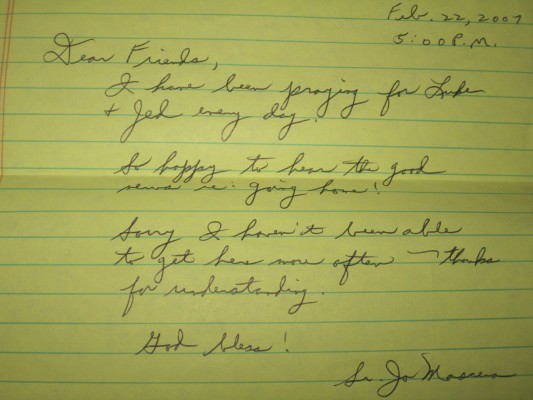 Feb. 22, 2007
5:00 P.M.
Dear Friends,
I have been praying for Luke
+ Jed every day.
So happy to hear the good
news re: going home!
Sorry I haven't been able
to get here more often — thanks
for understanding.
God bless!
Sr. Jo